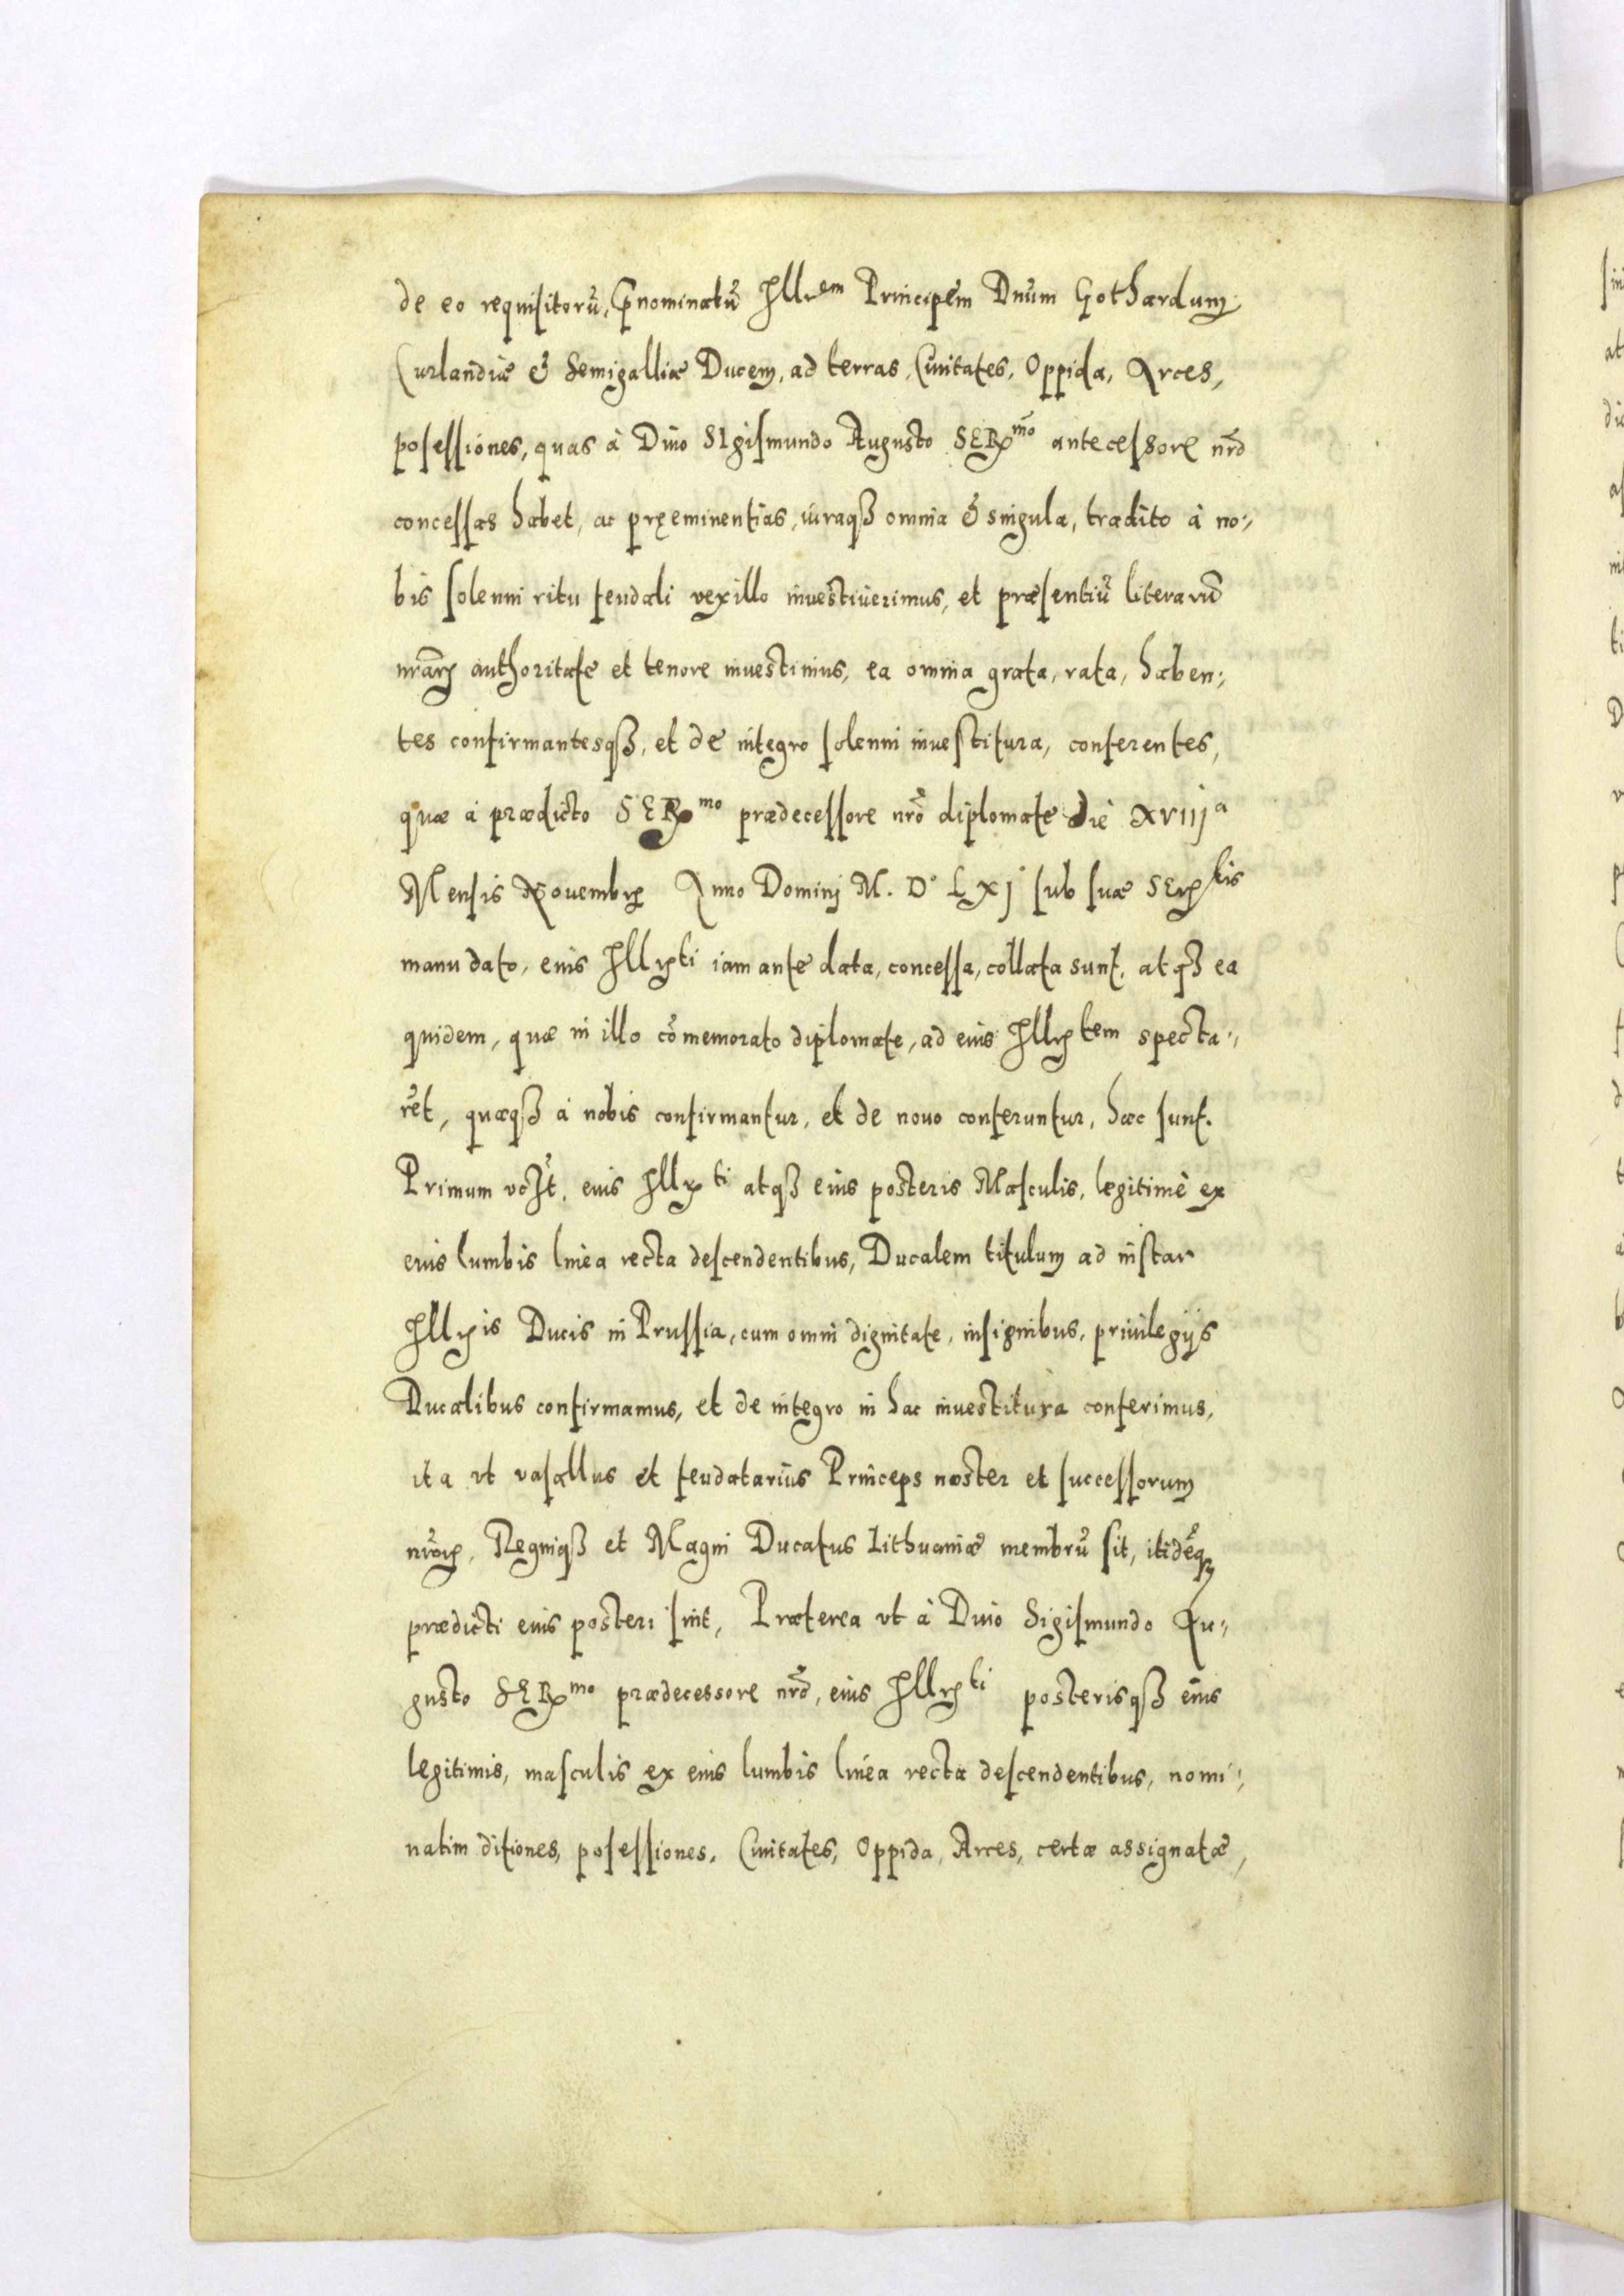 de eo requisitorũ, p̄nominatũ Illrem Principem Dnum Gothardum,
Curlandiæ & Semigalliæ Ducem, ad terras, Civitates, Oppida, Arces,
posessiones, quas à Divo SIgismundo Augusto SERmo antecessore nr̃o
concessas habet, ac pręeminentias, iuraqꝫ omnia & singula, tradito à no⸗
bis solenni ritu feudali vexillo investiverimus, et præsentiũ literarũ
nr̃arꝝ authoritate et tenore investimus, ea omnia grata, rata, haben⸗
tes confirmantesqꝫ, et de integro solenni investitura, conferentes,
quæ à prædicto SERmo prædecessore nr̃o diplomate die XVIIIa
Mensis Novembrꝭ Anno Domini M. D° LXj° sub suæ SErtis
manu dato, eius Illrti iam ante data, concessa, collata sunt, atqꝫ ea
quidem, quæ in illo cõmemorato diplomate, ad eius Illrtem specta⸗
rẽt, quæqꝫ à nobis confirmantur, et de novo conferuntur, hæc sunt.
Primum eius Illrti atqꝫ eius posteris Masculis, legitimè ex
eius lumbis linea recta descendentibus, Ducalem titulum ad instar
Illris Ducis in Prussia, cum omni dignitate, insignibus, privilegijs
Ducalibus confirmamus, et de integro in hac investitura conferimus,
ita vt vasallus et feudatarius Princeps noster et successorum
nr̃orꝝ, Regniqꝫ et Magni Ducatus Lithuaniæ membrũ sit, itidẽqꝫ
prædicti eius posteri sint, Præterea vt à Divo Sigismundo Au⸗
gusto SERmo prædecessore nr̃o, eius Illrti posterisqꝫ eius
legitimis, masculis ex eius lumbis linea recta descendentibus, nomi⸗
natim ditiones, posessiones, Civitates, Oppida, Arces, certæ assignatæ,